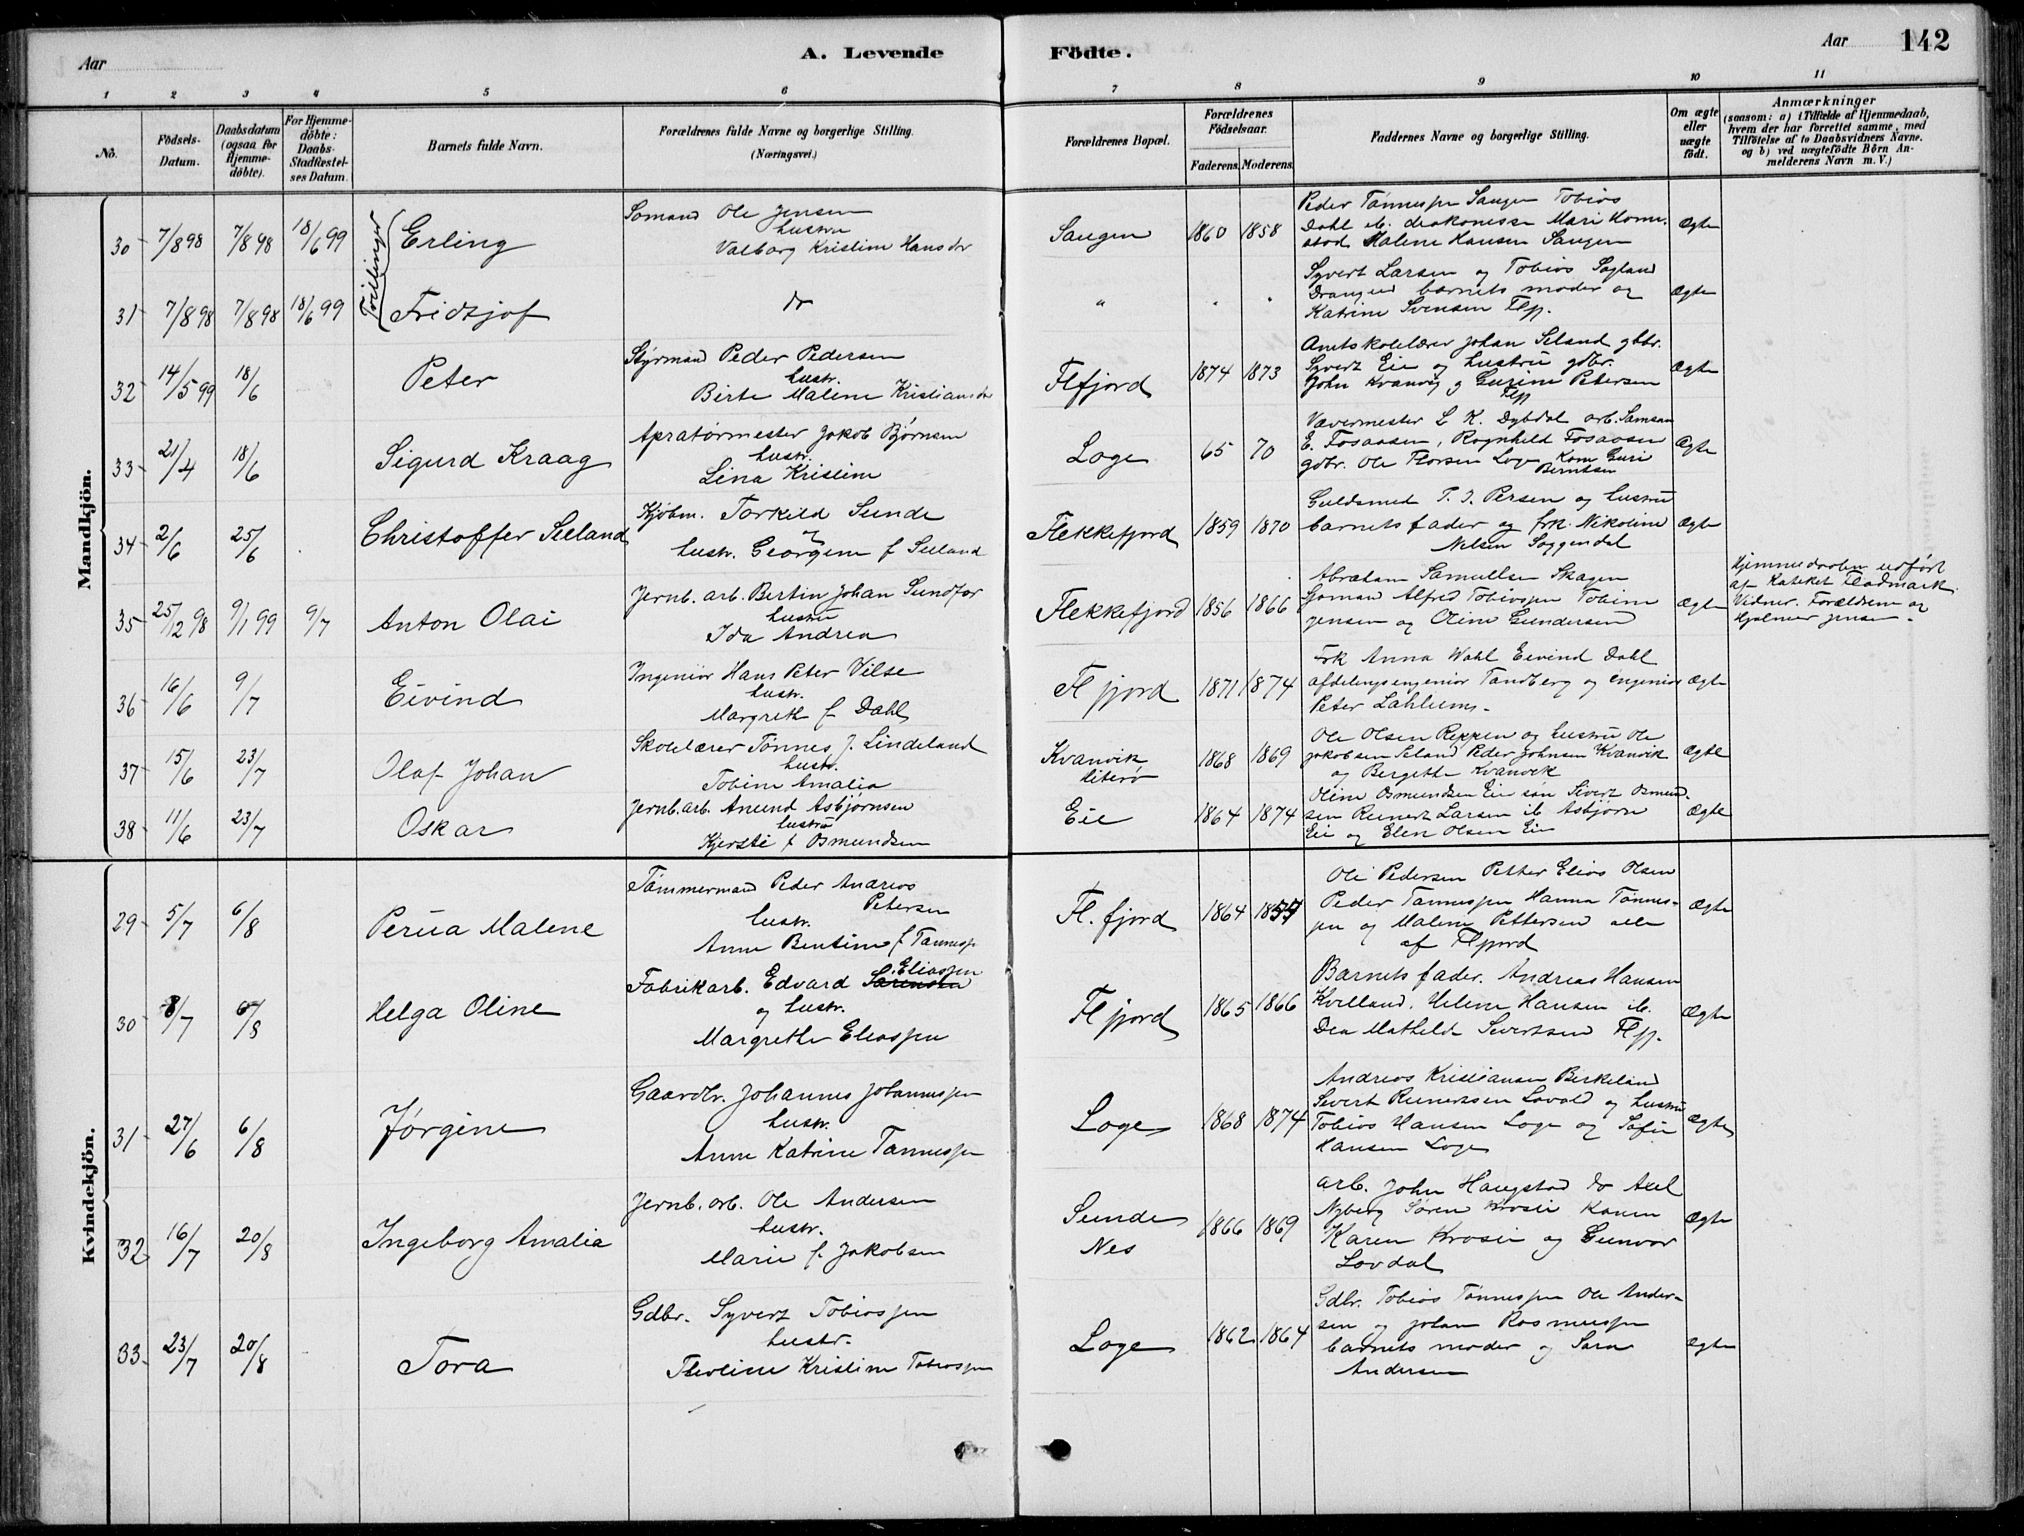 Aar
A. Levende
Födte.
Aar
142
1 2 3 4 5 6 7 8 9 10 11
No.
Födsels-Datum.
Daabsdatum (ogsaa for Hjemmedöbte).
For Hjemmedöbte: Daabs-Stadfæstelses Datum.
Barnets fulde Navn.
Forældrenes fulde Navne og borgerlige Stilling. (Næringsvei.)
Forældrenes Bopæl.
Forældrenes Födselsaar.
Faderens. Moderens.
Faddernes Navne og borgerlige Stilling.
Om ægte eller uægte födt.
Anmærkninger
(saasom: a) i Tilfælde af Hjemmedaab, hvem der har forrettet samme, med Tilföielse af to Daabsvidners Navne. og b) ved uægtefödte Börn Anmelderens Navn m. V.)
Mandkjön.
Tvillinger
30 7/8 98 7/8 98 18/6 99 Erling
Sømand Ole Jensen
hustru
Valborg Kristine Hansdr
Saugen 1860 1858
Peder Tønnessen Saugen Tobias
Dahl ib. diakonesse Mari
Malene Hansen Saugen
Ægte
31 7/8 98 7/8 98 18/6 99 Fridtjof
do
" " "
Syvert Larsen og Tobias
barnets moder og
Katrine Svensen Flfj.
Ægte
32 14/5 99 18/6 Peter
Styrmand Peder Pedersen
hustr.
Birte Malene Kristiansdr
Flfjord 1874 1873
Amtskolelærer Johan Seland gbr.
Syvert Eie og hustru gdbr.
John Kvanvig og Gurine Petersen
Flfj
Ægte
33 21/4 18/6 Sigurd Kraag
Apratørmester Jakob Bjørnsen
hustr.
Lina Kristine
Loge 65 70
Vævermester L K. Dybdal arb. Samson
E. Fosaasen, Ragnhild Fosaasen
gdbr. Ole Loge Kone Guri
Berntsen
Ægte
34 2/6 25/6 Christoffer Seeland
Kjøbm. Torkild Sunde
hustr. Georgine f Seeland
Flekkefjord 1859 1870
Guldsmed T. I. Persen og hustru
barnets fader og frk. Nikoline
Nelsen Soggendal
Ægte
35 25/12 98 9/1 99 9/7 Anton Olai
Jernb. arb. Bertin Johan Sundfør
hustru
Ida Andrea
Flekkefjord 1856 1866
Abraham Samuelsen Skagen
Sjømand Alfred Tobiassen Tobine
Jensen og Oline Gundersen
Ægte
Hjemmedaaben udført
af Kateket Flodmark.
Vidner. Forældrene og
Hjalmar Jensen.
36 16/6 9/7 Eivind
Ingeniør Hans Peter Vilse
hustr.
Margreth f. Dahl
Fl fjord 1871 1874
Frk Anna Wahl Eivind Dahl
afdelingsingeniør Tandberg og ingeniør
Peter Lahlum.
Ægte
37 15/6 23/7 Olaf Johan
Skolelærer Tønnes J. Lindeland
hustr.
Tobine Amalia
Kvanvik
Hiterø
1868 1869
Ole Olsen Reppen og hustru Ole
Jakobsen Seland Peder Johnsen Kvanvik
og Bergitte Kvanvik
Ægte
38 11/6 23/7 Oskar
Jernb. arb. Anund Asbjørnsen
hustru
Kjersti f Osmundsen
Eie 1864 1874
Oline Osmundsen Eie Sivert Osmund-
sen Reinert Larsen ib Asbjørn
Eie og Elen Olsen Eie
Ægte
Kvindekjön.
29 5/7 6/8 Perua Malene
Tømmermand Peder Andreas
Petersen
hustr.
Anne Bentine f Tønnessen
Fl. fjord 1864
Ole Pedersen Petter Elias Olsen
Peder Tønnessen Hanna Tønnes-
sen og Malene Pettersen alle
af Flfjord
Ægte
30 8/7 6/8 Helga Oline
Eliassen
Fabrikarb. Edvard Sørensen
og hustr.
Margrethe Eliassen
Fl fjord 1865 1866
Barnets fader. Andreas Hansen
Kvelland. Helene Hansen ib.
Dea Mathilde Sivertsen Flfj.
Ægte
31 27/6 6/8 Jørgine
Gaardbr. Johannes Johannessen
hustr.
Anne Katrine Tønnessen
Loge 1868 1874
Andreas Kristiansen Birkeland
Sivert Reinertsen Lavold og hustru
Tobias Hansen Loge og Sofie
Hansen Loge
Ægte
32 16/7 20/8 Ingeborg Amalia
Jernb. arb. Ole Andersen
hustr.
Marie f. Jakobsen
Sunde
Nes
1866 1869
arb. John Haugstad do Axel
Nyberg Søren Krosli Konen
Karen Krosli og Gunvor
Lovdal
Ægte
33 23/7 20/8 Tora
Gdbr. Syvert Tobiassen
hustr.
Teoline Kristine Tobiassen
Loge 1862 1864
Gdbr. Tobias Tønnessen Ole Ander-
sen og Johan Rasmussen
barnets moder og Sara
Andersen
Ægte